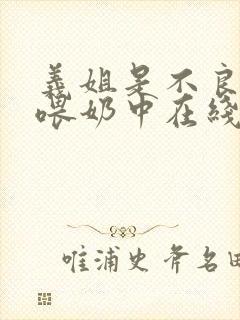 義姐是不良
喂奶中在綫
唯浦史斧名田